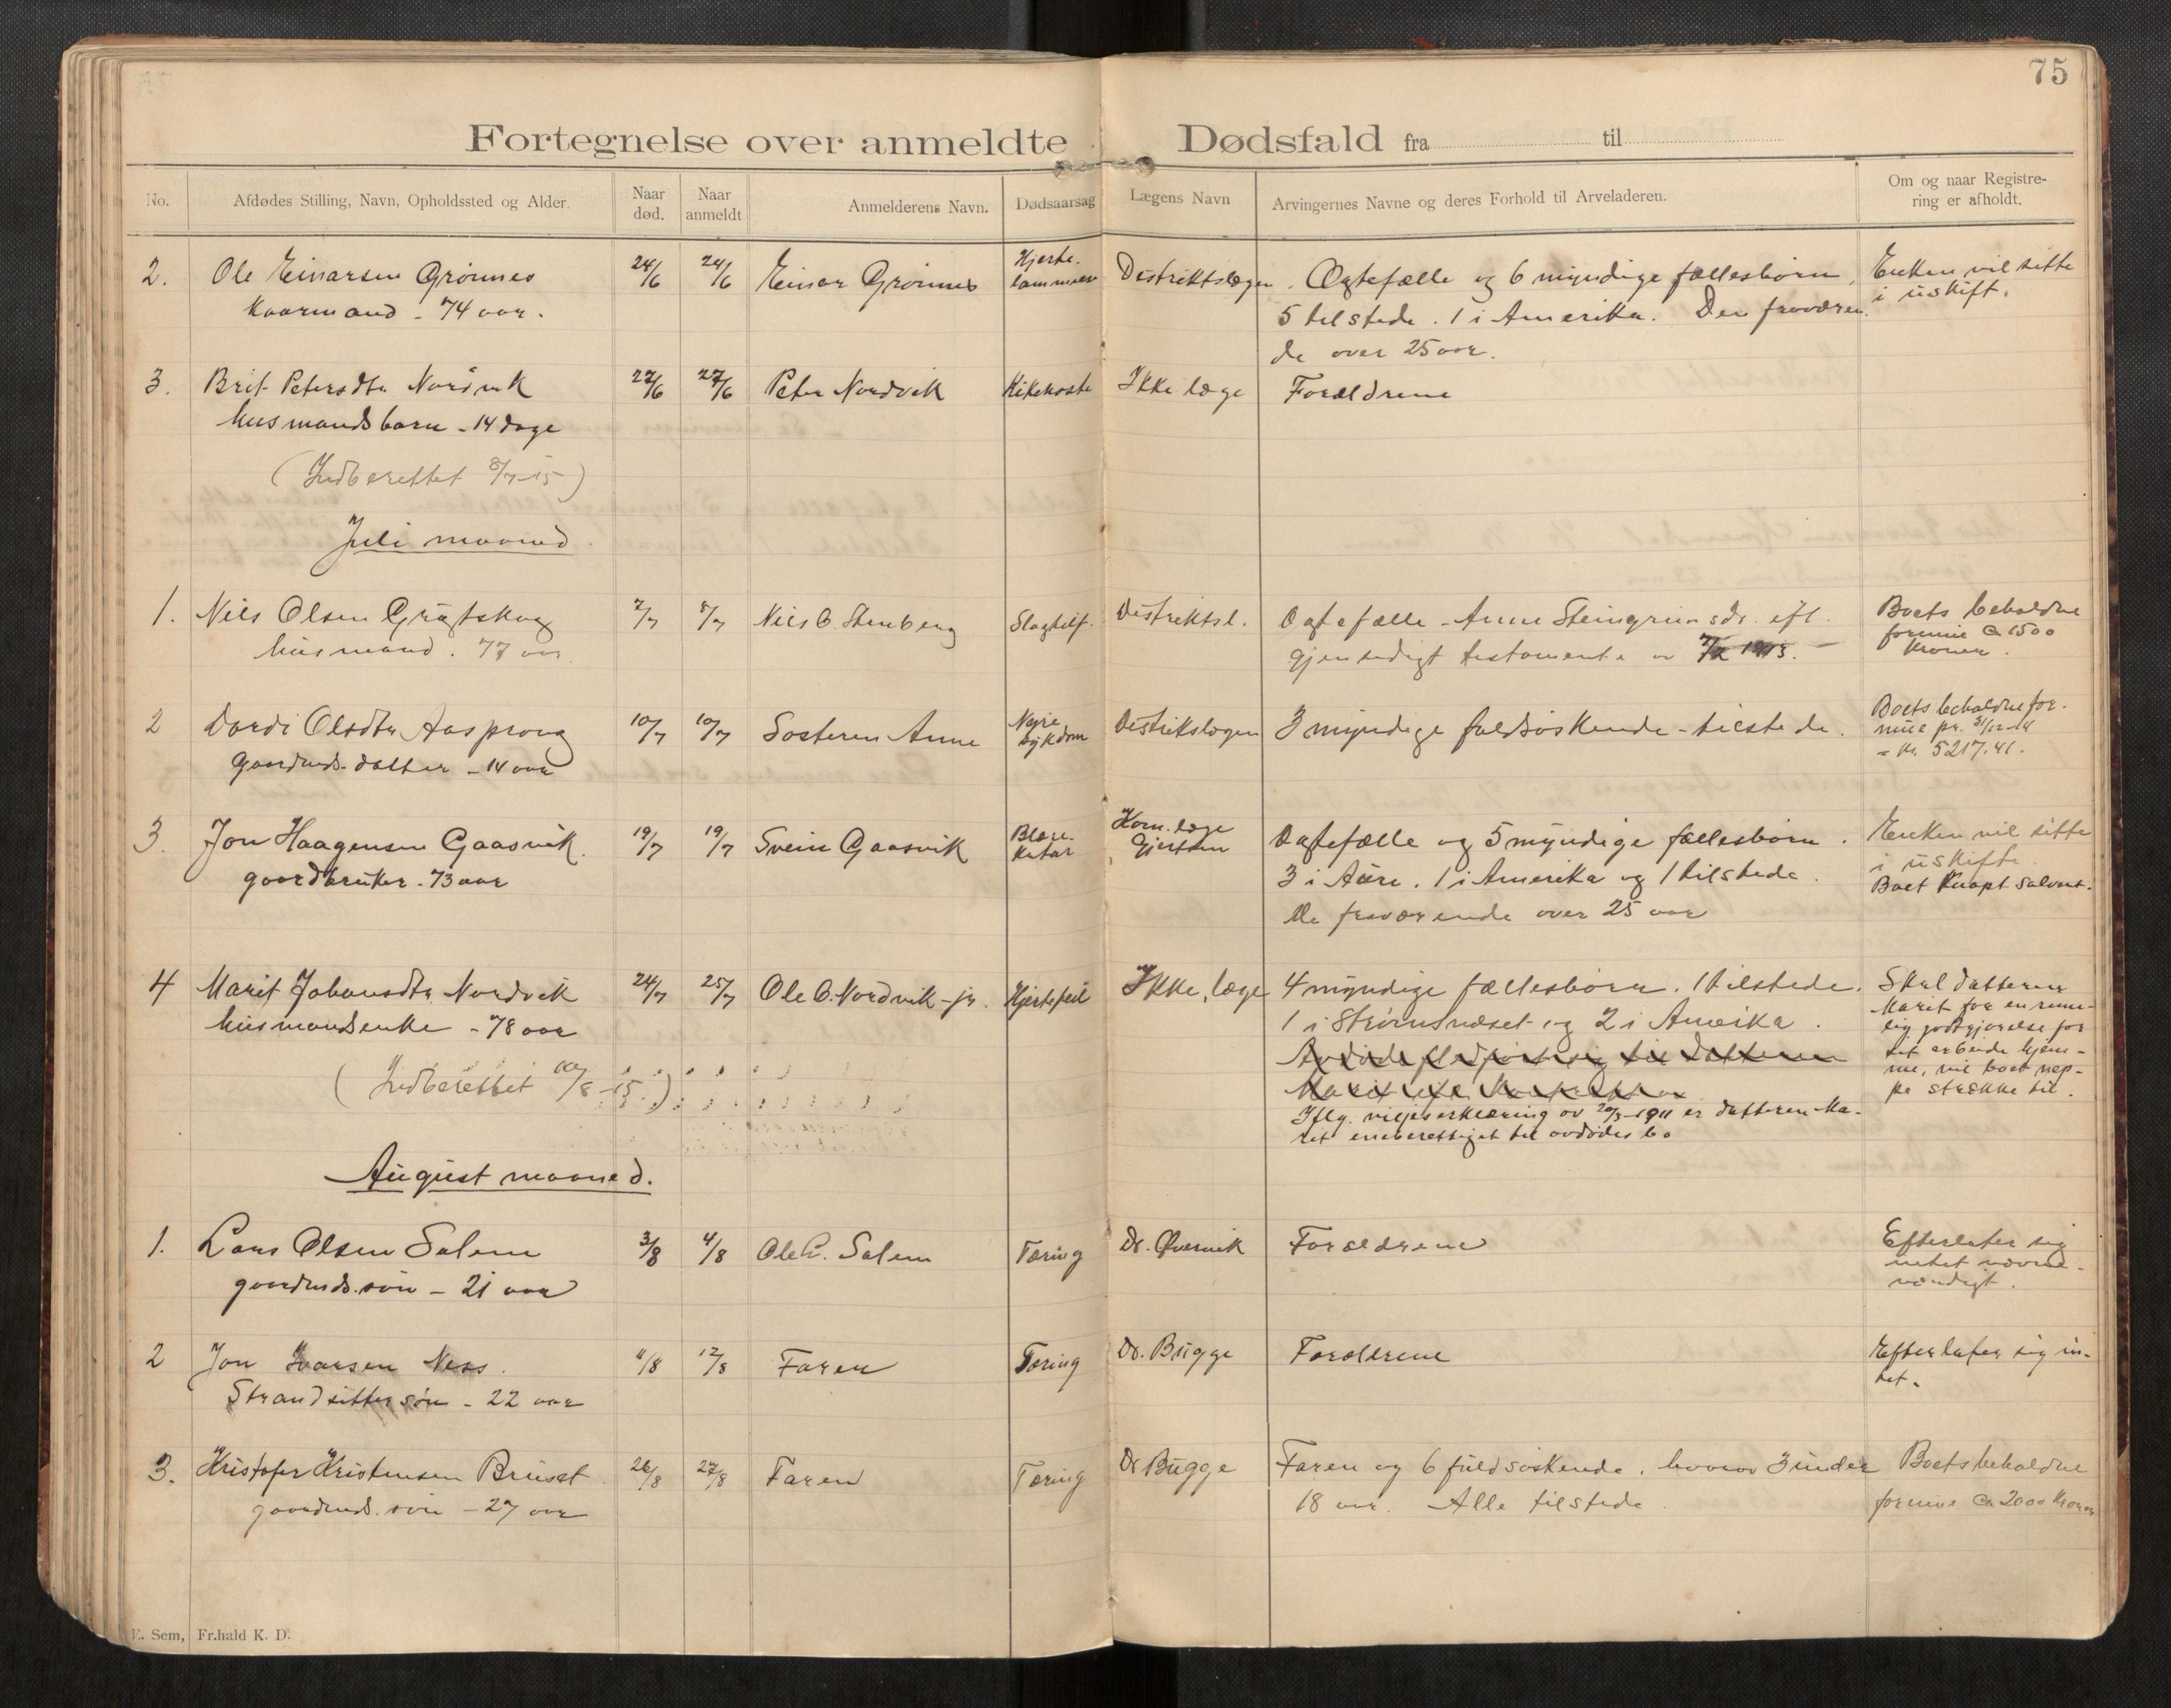 75
Fortegnelse over anmeldte Dødsfald fra til
No. Afdødes Stilling, Navn, Opholdssted og Alder. Naar død. Naar anmeldt Anmelderens Navn. Dødsaarsag Lægens Navn Arvingernes Navne og deres Forhold til Arveladeren. Om og naar Registrering er afholdt.
2. Ole Einarsen Grønnes 24/6 24/6 Einar Grønnes Hjertelammelse Distriktslægen. Ægtefælle og 6 myndige fællesbørn, Enken vil sitte
kaarmand - 74 aar. 5 tilstede. 1 i Amerika. Den fraværen- i uskift.
de over 25 aar.
3. Brit Petersdtr Nordvik 27/6 27/6 Peter Nordvik Kikhoste Ikke læge Forældrene
husmandsbarn - 14 dage
(Indberettet 8/7-15)
Juli maaned
1. Nils Olsen Grøftskag 7/7 8/7 Nils O. Stenberg Slagtilf. Distriktsl. Ægtefælle - Anne Steingrimsdr. efl. Boets beholdne
husmand. 77 aar gjensidigt testamente av formue ca 1500
kroner.
2 Dordi Olsdtr Aasprong 10/7 10/7 Søsteren Anne Nyresykdom Distrikslægen 3 myndige fuldsøskende - tilstede. Boets beholdne for-
gaardmds. datter - 14 aar mue pr. 31/12-14
= kr. 5217.41.
3. Jon Haagensen Gaasvik. 19/7 19/7 Svein Gaasvik Blærekatar Kom. læge Gjertsen Ægtefælle og 5 myndige fællesbørn. Enken vil sitte
gaardbruker. 73 aar 3 i Aure. 1 i Amerika og 1 tilstede. i uskifte.
De fraværende over 25 aar Boet knapt solvent.
4 Marit Johansdtr Nordvik 24/7 25/7 Ole O. Nordvik - jr. Hjertefeil Ikke læge 4 myndige fællesbørn. 1 tilstede. Skal datteren
husmandsenke - 78 aar 1 i Strømsnæset og 2 i Amerika. Marit faa en rime-
lig godtgjørelse for
sit arbeide hjem-
me, vil boet nep-
pe strække til.
(Indberettet 10/8-15.)
Iflg. viljeserklæring av 20/3-1911 er datteren Ma-
rit eneberettiget til avdødes bo
August maaned.
1. Lars Olsen Salem 3/8 4/8 Ole L. Salem Tæring Dr. Øvervik Forældrene Efterlater sig
gaardmds. søn - 21 aar intet nævne-
værdigt.
2 Jon Ivarsen Ness. 11/8 12/8 Faren Tæring Dr. Bugge Forældrene Efterlater sig in-
Strandsitter søn - 22 aar tet.
3. Kristofer Kristensen Bruset 26/8 27/8 Faren Tæring Dr Bugge Faren og 6 fuldsøskende, hvorav 3 under Boets beholdne
gaardmds. søn - 27 aar 18 aar. Alle tilstede. formue ca 2000 kroner
E. Sem, Fr.hald K. D.